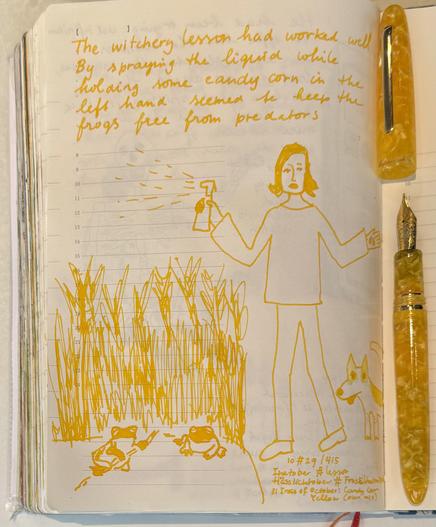 [ ]
The witchery lesson had worked well
By spraying the liquid while
holding some candy corn in the
left hand seemed to keep the
frogs free from predators
10#29 / 415
Inktober # lesson
31 Inks of October: Candy Corn
Yellow